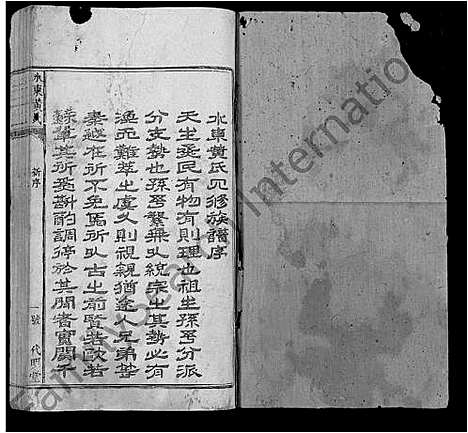 水東黃氏四修族譜序
天生烝民有物有則理也祖生孫子分派
分支勢也孫子繁衆久統宗之其勢必有
渙而難萃之虞久則視親猶途人兄弟等
秦越在所不免焉所以古之前賢若歐若
蘇輩其所為斟酌調停於其間者實關乎
水東黃氏
新序
一號
代四堂
FamilySearch International